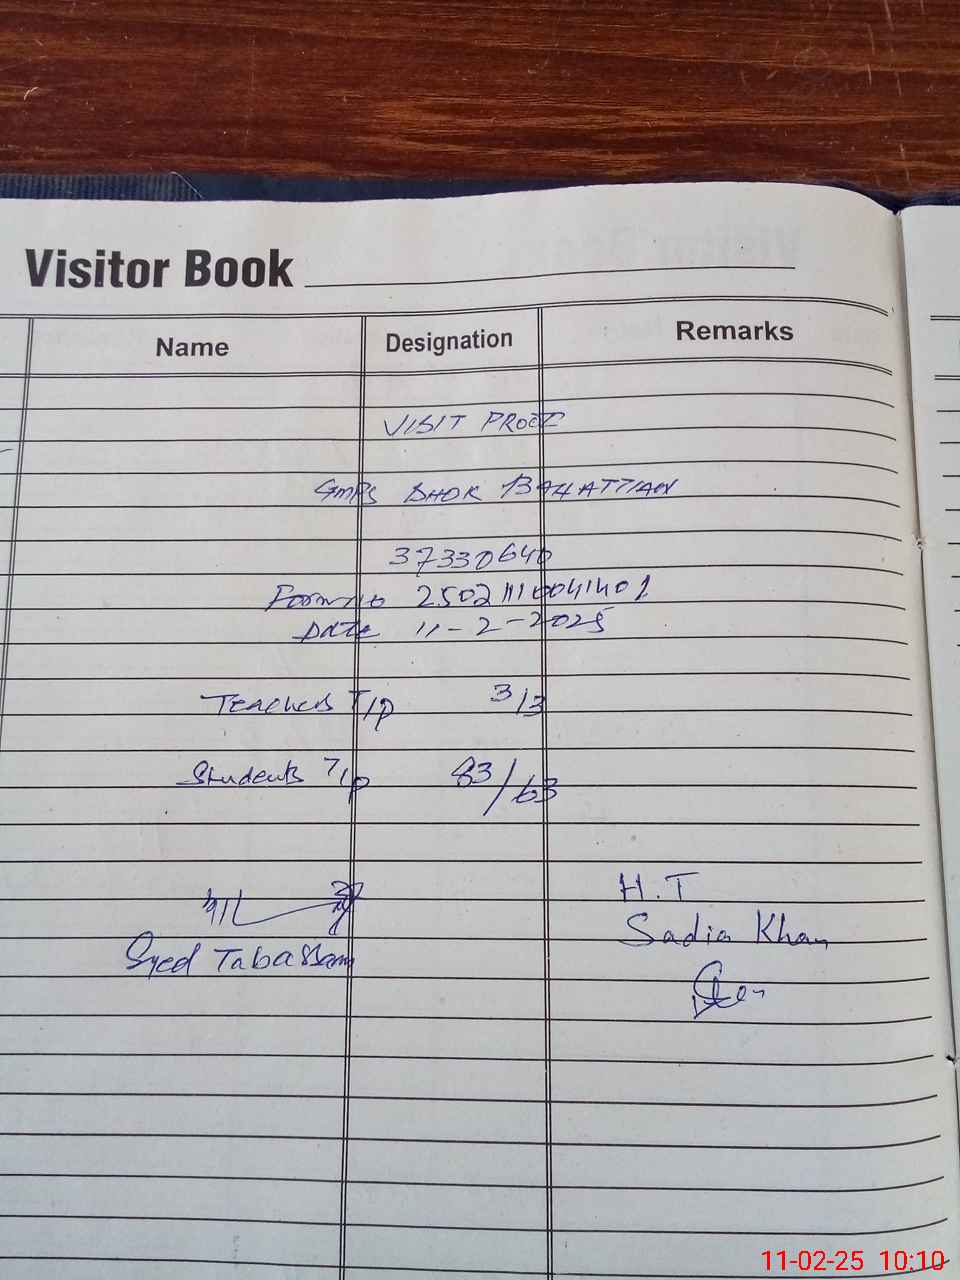 Visitor Book
Name Designation Remarks
VISIT PROOF
GMPS DHOK
37330640
Form no 25021110041401
Date 11-2-2025
Teachers T/p 3/3
Students T/p 83/63
H.T
Sadia Khan
Syed Tabassam
11-02-25 10:10